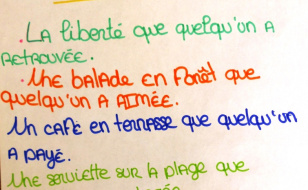 . LA liberté que quelqu'un A
RETROUVÉE.
. Une bALADE EN Forêt que
quelqu'un A AIMÉE.
Un CAFÉ en terrasse que quelqu'un
A PAYÉ.
Une serviette sur la plage que